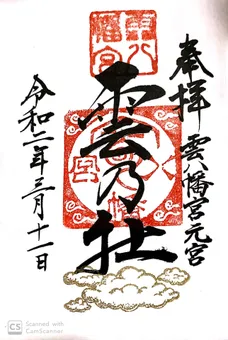 奉拝 雲八幡宮元宮
雲乃社
令和二年三月十一日
雲八幡宮
CS Scanned with
CamScanner